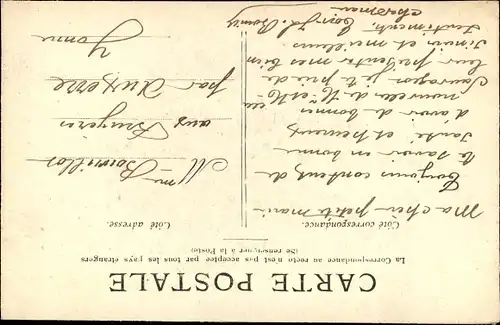 CARTE POSTALE
La Correspondance au recto n'est pas acceptée par tous les pays étrangers
(Se renseigner à la Poste)
Côté correspondance.
Côté adresse.
Ma chère petite
Toujours contents de
te savoir en bonne
santé et heureux
d'avoir de bonnes
nouvelles de
je te prie de
leur présenter mes bien
sincères et meilleurs
sentiments.
Mme
aux Bruyères
par Auxerre
Yonne